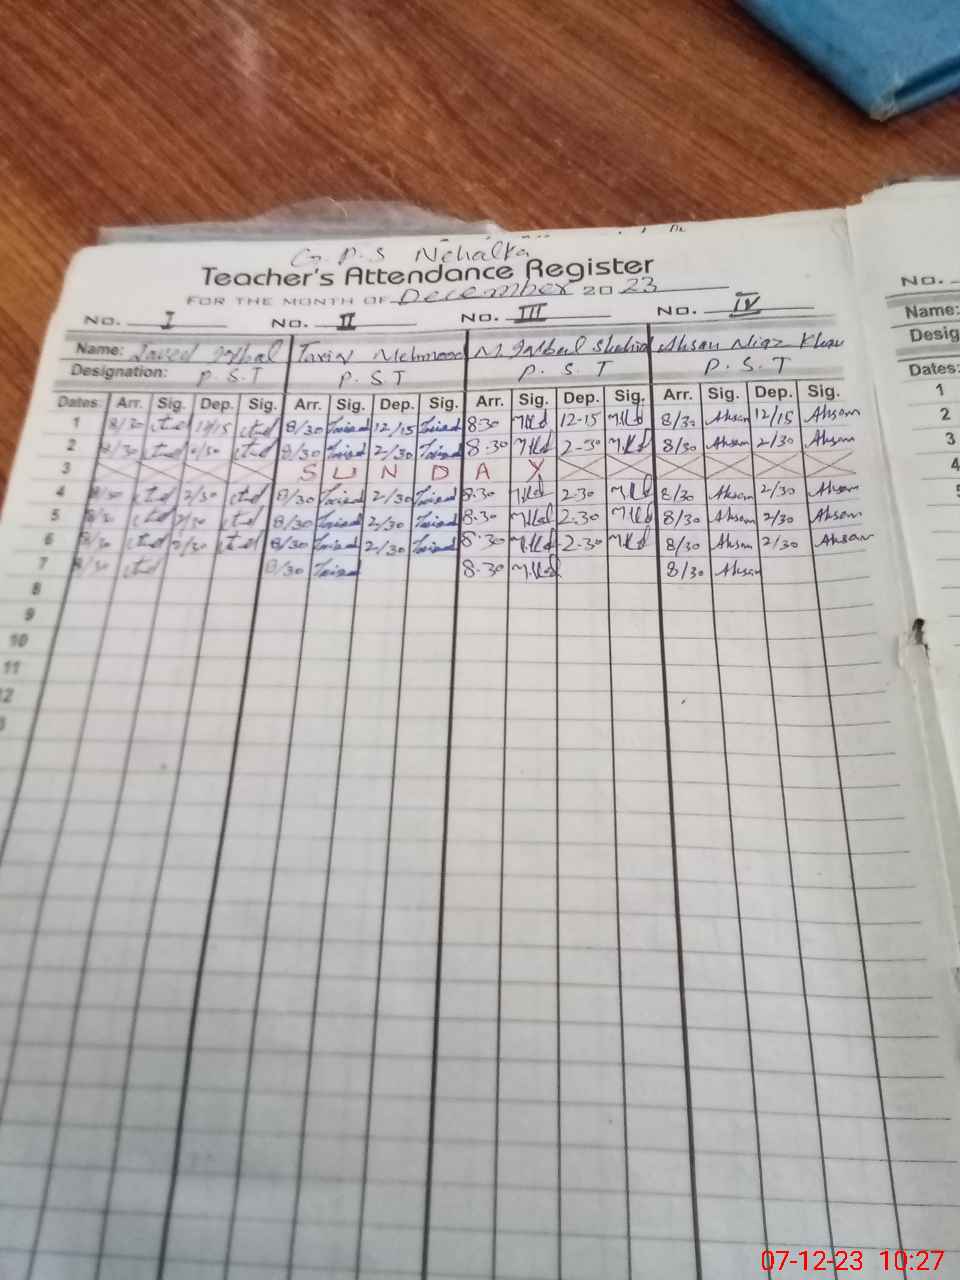 G.P.S Nehalka
Teacher's Attendance Register
FOR THE MONTH OF December 20 23
No. I No. II No. III No. IV
Name: Javed Iqbal Tariq Mehmood M Iqbal Shahid Ahsan Niaz Khan
Designation: P.S.T P.S.T P.S.T P.S.T
Dates: Arr. Sig. Dep. Sig. Arr. Sig. Dep. Sig. Arr. Sig. Dep. Sig. Arr. Sig. Dep. Sig.
1 8/30 12/15 8/30 Tariq 12/15 Tariq 8:30 12-15 8/30 Ahsan 12/15 Ahsan
2 8/30 2/30 8/30 Tariq 2/30 Tariq 8:30 2-30 8/30 Ahsan 2/30 Ahsan
3 S U N D A Y
4 8/30 2/30 8/30 Tariq 2/30 Tariq 8.30 2.30 8/30 Ahsan 2/30 Ahsan
5 8/30 2/30 8/30 Tariq 2/30 Tariq 8.30 2.30 8/30 Ahsan 2/30 Ahsan
6 8/30 2/30 8/30 Tariq 2/30 Tariq 8:30 2.30 8/30 Ahsan 2/30 Ahsan
7 8/30 8/30 Tariq 8.30 8/30 Ahsan
8
9
10
11
12
No.
Name:
Desig
Dates:
1
2
3
4
5
07-12-23 10:27